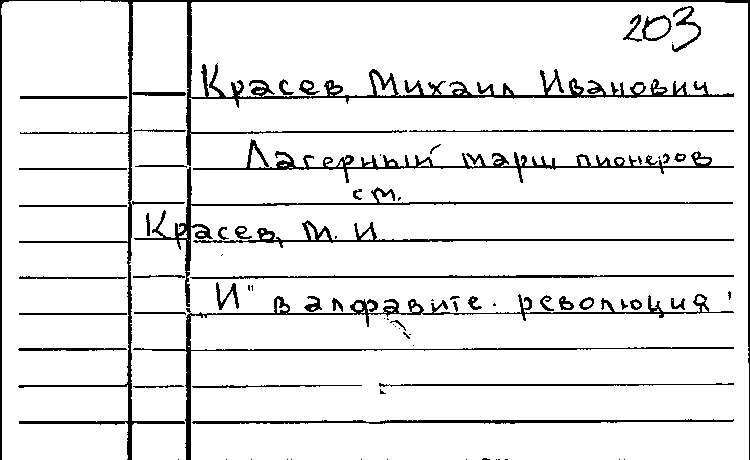 203
Красев, Михаил Иванович
Лагерный марш пионеров
см.
Красев, М. И
„И" в алфавите. революция'